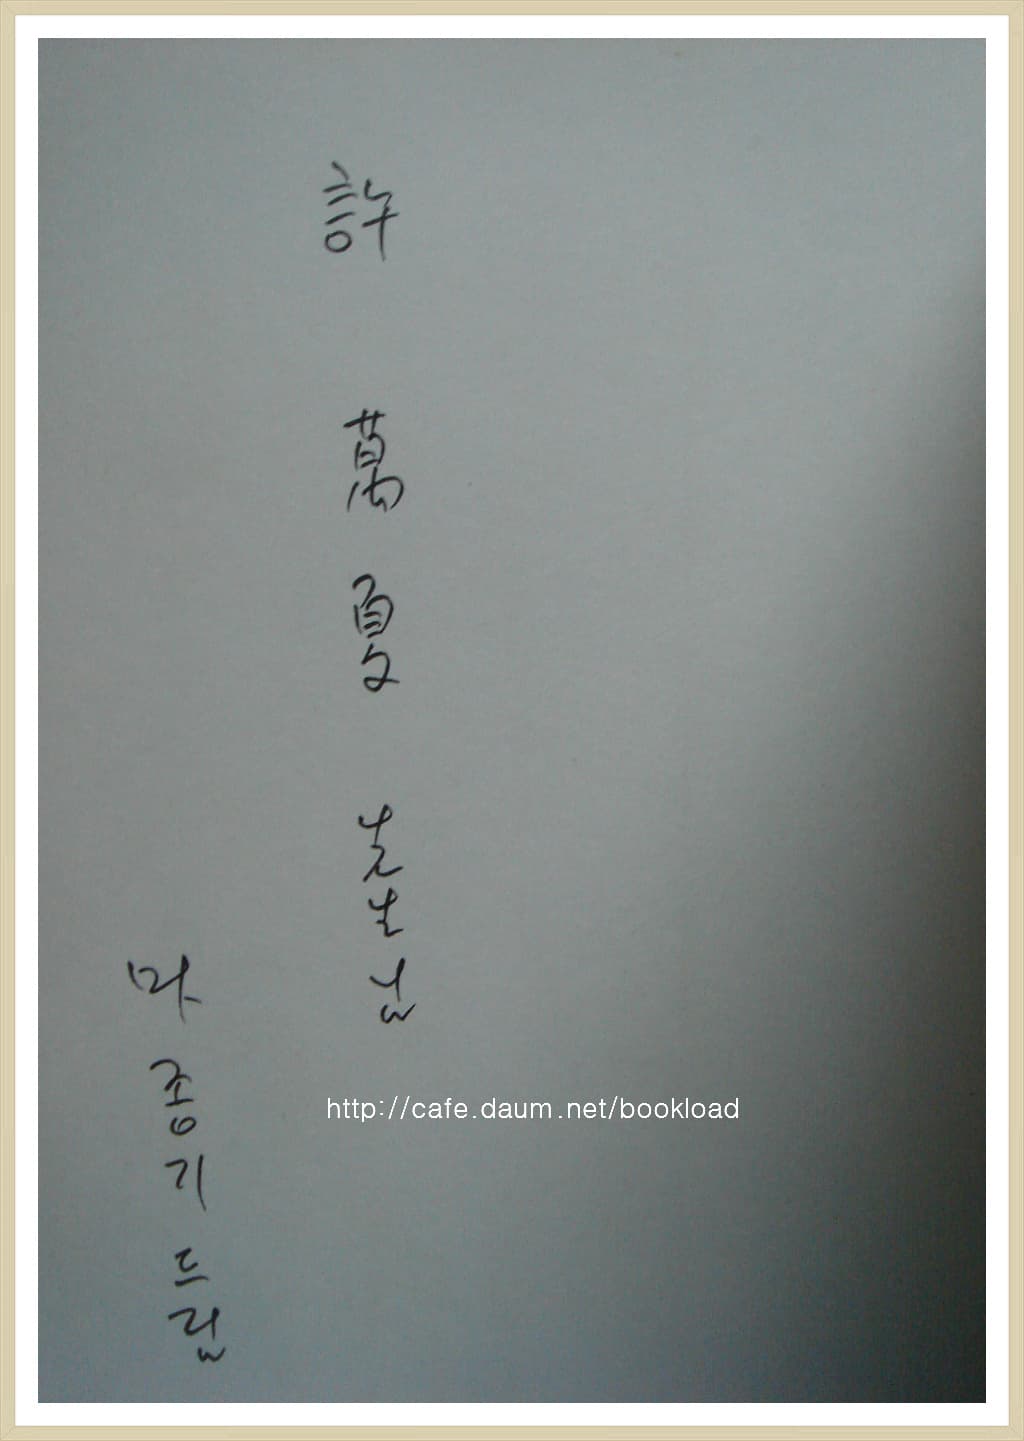 許 萬夏 先生님
마종기 드림
http://cafe.daum.net/bookload